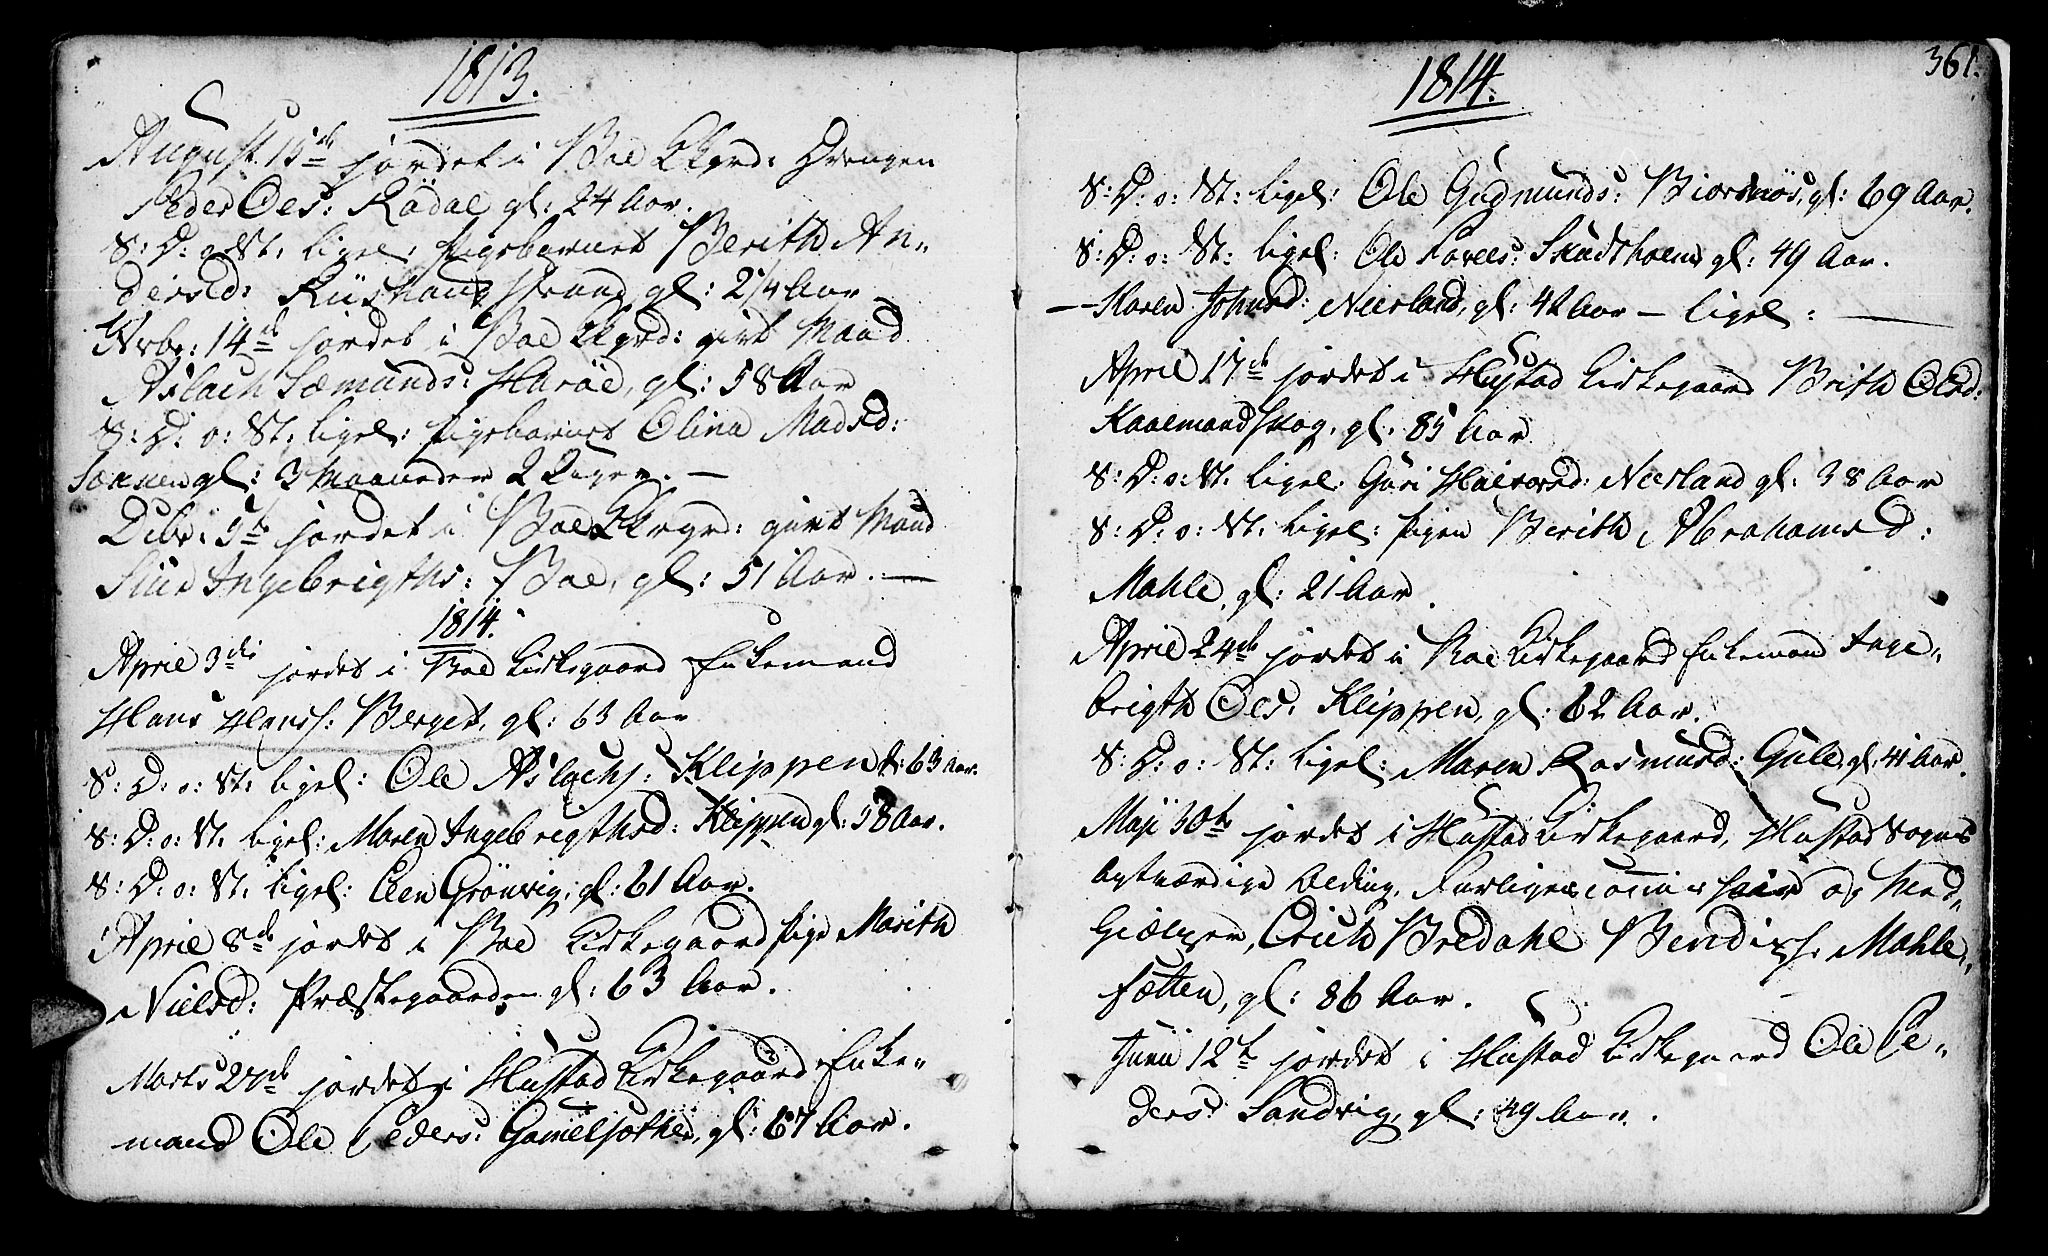 1813.
August 15de jordet i Boe Kkgrd: Drengen
Peder Oes: Rödal, gl: 24 Aar.
S: D: o: St: ligel: Pigebarnet Berith An-
dersd: gl: 2 1/4 Aar
Nvbr: 14de jordet i Boe Kkgrd: gift Mand
Aslach Sæmunds: Haröe, gl: 58 Aar
S: D: o: St: ligel: Pigebarnet Olina Madsd:
gl: 3 Maaneder 2 Uger. —
Decbr: 5te jordet i Boe Kkegrd: givt Mand
Siur Ingebrigths: Boe, gl: 51 Aar. —
1814.
April 3die jordet i Boe Kirkegaard Enkemand
Hans Hanss: Berget, gl: 63 Aar
S: D: o: St: ligel: Ole Aslachs: Klippen gl: 63 Aar.
S: D: o: St: ligel: Maren Ingebrigthsd: Klippen gl: 58 Aar.
S: D: o: St: ligel: Elen Grönvig, gl: 61 Aar.
April 8de jordet i Boe Kirkegaard Pige Marith
Nielsd: Præstegaarden gl: 63 Aar.
Marts 27de jordet i Hustad Kirkegaard Enke-
mand Ole Peders: Gammelsæther, gl: 67 Aar.
361.
1814.
S: D: o: St: ligel: Ole Gudmunds: Biørnøs, gl: 69 Aar.
S: D: o: St: ligel: Ole Povels: Skudtholm gl: 49 Aar.
— Maren Johnsd: Neerland, gl: 42 Aar — ligel: —
April 17de jordet i Hustad Kirkegaard Brith Olsd:
Kaalemandskog, gl: 85 Aar
S: D: o: St: ligel: Guri Halvorsd: Neerland gl: 38 Aar
S: D: o: St: ligel: Pigen Berith Abrahamsd:
Mahle, gl: 21 Aar.
April 24de jordet i Boe Kirkegaard Enkemand Inge-
brigth Oes: Klippen, gl: 62 Aar.
S: D: o: St: ligel: Maren Rasmusd: Gule, gl: 41 Aar.
Maji 30te jordet i Hustad Kirkegaard, Hustad Sogns
agtværdige Olding, Forligelsecommissair og Med-
hielper, Erich Bredahl Bendixs: Mahle-
fætten, gl: 86 Aar.
Junii 12te jordet i Hustad Kirkegaard Ole Pe-
ders: Sandvig, gl: 49 Aar.